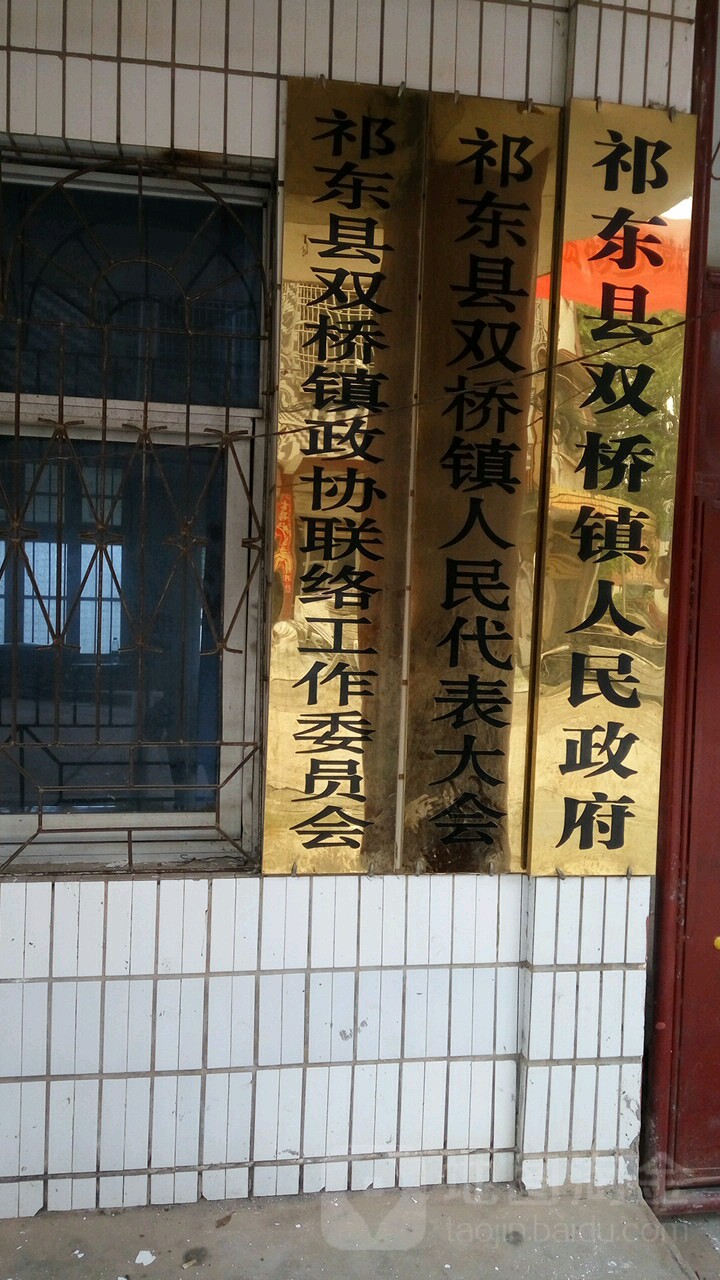 祁东县双桥镇人民政府
祁东县双桥镇人民代表大会
祁东县双桥镇政协联络工作委员会
地图淘金
taojin.baidu.com